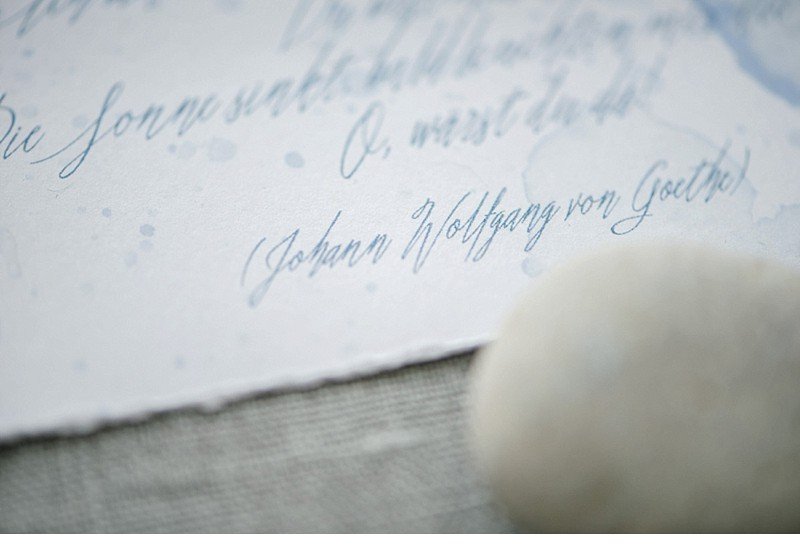 Die Sonne sinkt, bald leuchten mir die
O, wärst du da!
(Johann Wolfgang von Goethe)